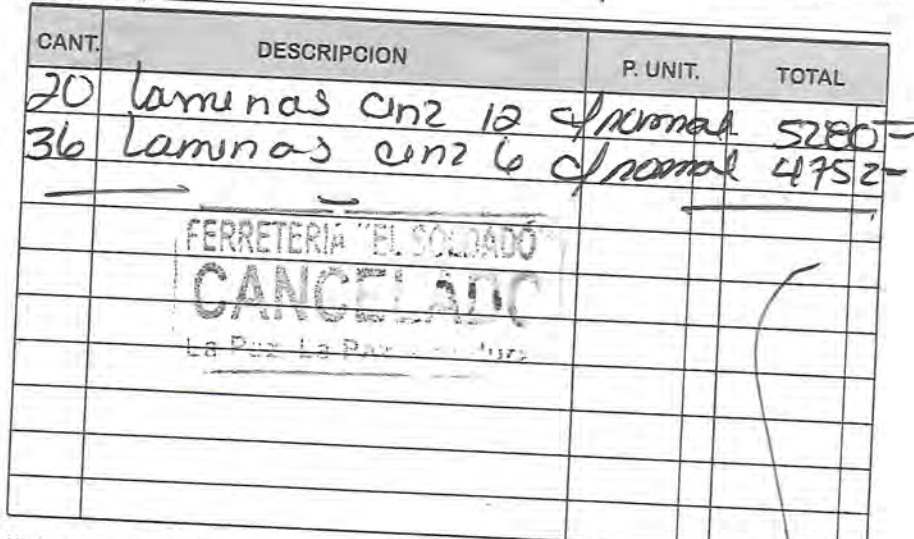 CANT. DESCRIPCION P. UNIT. TOTAL
20 Laminas cinz 12 c/normal 5280=
36 Laminas cinz 6 c/normal 4752=
FERRETERIA "EL SOLDADO"
CANCELADO
La Paz La Paz